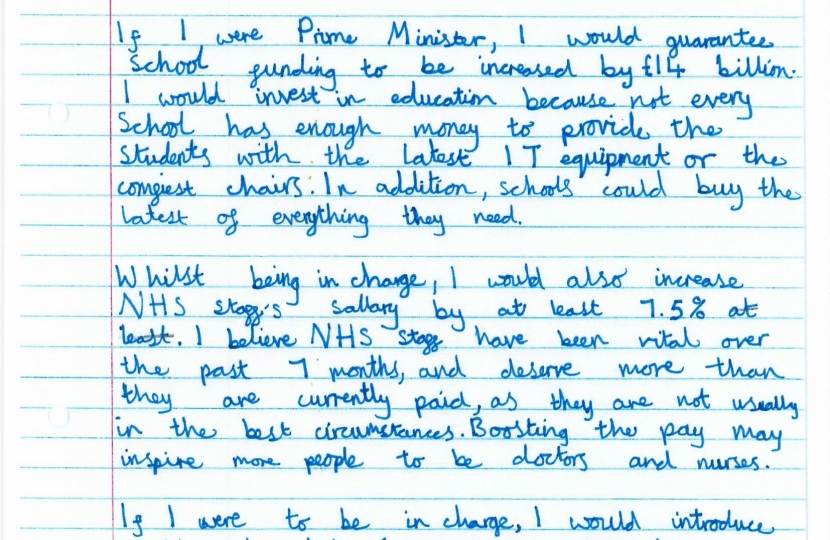 If I were Prime Minister, I would guarantee
school funding to be increased by £14 billion.
I would invest in education because not every
school has enough money to provide the
students with the latest IT equipment or the
comfiest chairs. In addition, schools could buy the
latest of everything they need.
Whilst being in charge, I would also increase
NHS staff's sallary by at least 7.5% at
least. I believe NHS staff have been vital over
the past 7 months, and deserve more than
they are currently paid, as they are not usually
in the best circumstances. Boosting the pay may
inspire more people to be doctors and nurses.
If I were to be in charge, I would introduce